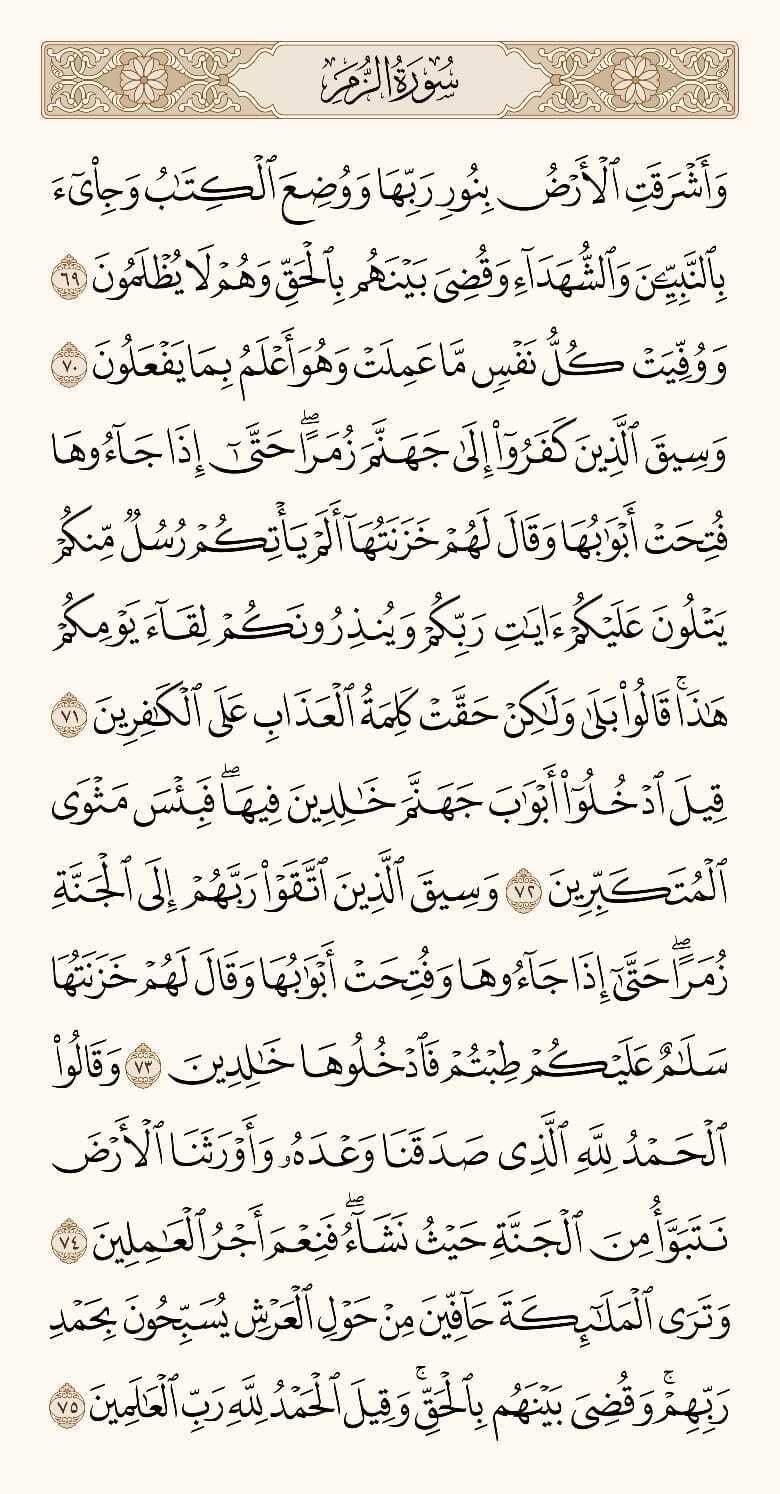 سُورَةُ الزُّمَرِ
وَأَشْرَقَتِ ٱلْأَرْضُ بِنُورِ رَبِّهَا وَوُضِعَ ٱلْكِتَٰبُ وَجِا۟ىٓءَ
بِٱلنَّبِيِّـۧنَ وَٱلشُّهَدَآءِ وَقُضِىَ بَيْنَهُم بِٱلْحَقِّ وَهُمْ لَا يُظْلَمُونَ ٦٩
وَوُفِّيَتْ كُلُّ نَفْسٍ مَّا عَمِلَتْ وَهُوَ أَعْلَمُ بِمَا يَفْعَلُونَ ٧٠
وَسِيقَ ٱلَّذِينَ كَفَرُوٓا۟ إِلَىٰ جَهَنَّمَ زُمَرًا ۖ حَتَّىٰٓ إِذَا جَآءُوهَا
فُتِحَتْ أَبْوَٰبُهَا وَقَالَ لَهُمْ خَزَنَتُهَآ أَلَمْ يَأْتِكُمْ رُسُلٌ مِّنكُمْ
يَتْلُونَ عَلَيْكُمْ ءَايَٰتِ رَبِّكُمْ وَيُنذِرُونَكُمْ لِقَآءَ يَوْمِكُمْ
هَٰذَا ۚ قَالُوا۟ بَلَىٰ وَلَٰكِنْ حَقَّتْ كَلِمَةُ ٱلْعَذَابِ عَلَى ٱلْكَٰفِرِينَ ٧١
قِيلَ ٱدْخُلُوٓا۟ أَبْوَٰبَ جَهَنَّمَ خَٰلِدِينَ فِيهَا ۖ فَبِئْسَ مَثْوَى
ٱلْمُتَكَبِّرِينَ ٧٢ وَسِيقَ ٱلَّذِينَ ٱتَّقَوْا۟ رَبَّهُمْ إِلَى ٱلْجَنَّةِ
زُمَرًا ۖ حَتَّىٰٓ إِذَا جَآءُوهَا وَفُتِحَتْ أَبْوَٰبُهَا وَقَالَ لَهُمْ خَزَنَتُهَا
سَلَٰمٌ عَلَيْكُمْ طِبْتُمْ فَٱدْخُلُوهَا خَٰلِدِينَ ٧٣ وَقَالُوا۟
ٱلْحَمْدُ لِلَّهِ ٱلَّذِى صَدَقَنَا وَعْدَهُۥ وَأَوْرَثَنَا ٱلْأَرْضَ
نَتَبَوَّأُ مِنَ ٱلْجَنَّةِ حَيْثُ نَشَآءُ ۖ فَنِعْمَ أَجْرُ ٱلْعَٰمِلِينَ ٧٤
وَتَرَى ٱلْمَلَٰٓئِكَةَ حَآفِّينَ مِنْ حَوْلِ ٱلْعَرْشِ يُسَبِّحُونَ بِحَمْدِ
رَبِّهِمْ ۚ وَقُضِىَ بَيْنَهُم بِٱلْحَقِّ ۚ وَقِيلَ ٱلْحَمْدُ لِلَّهِ رَبِّ ٱلْعَٰلَمِينَ ٧٥